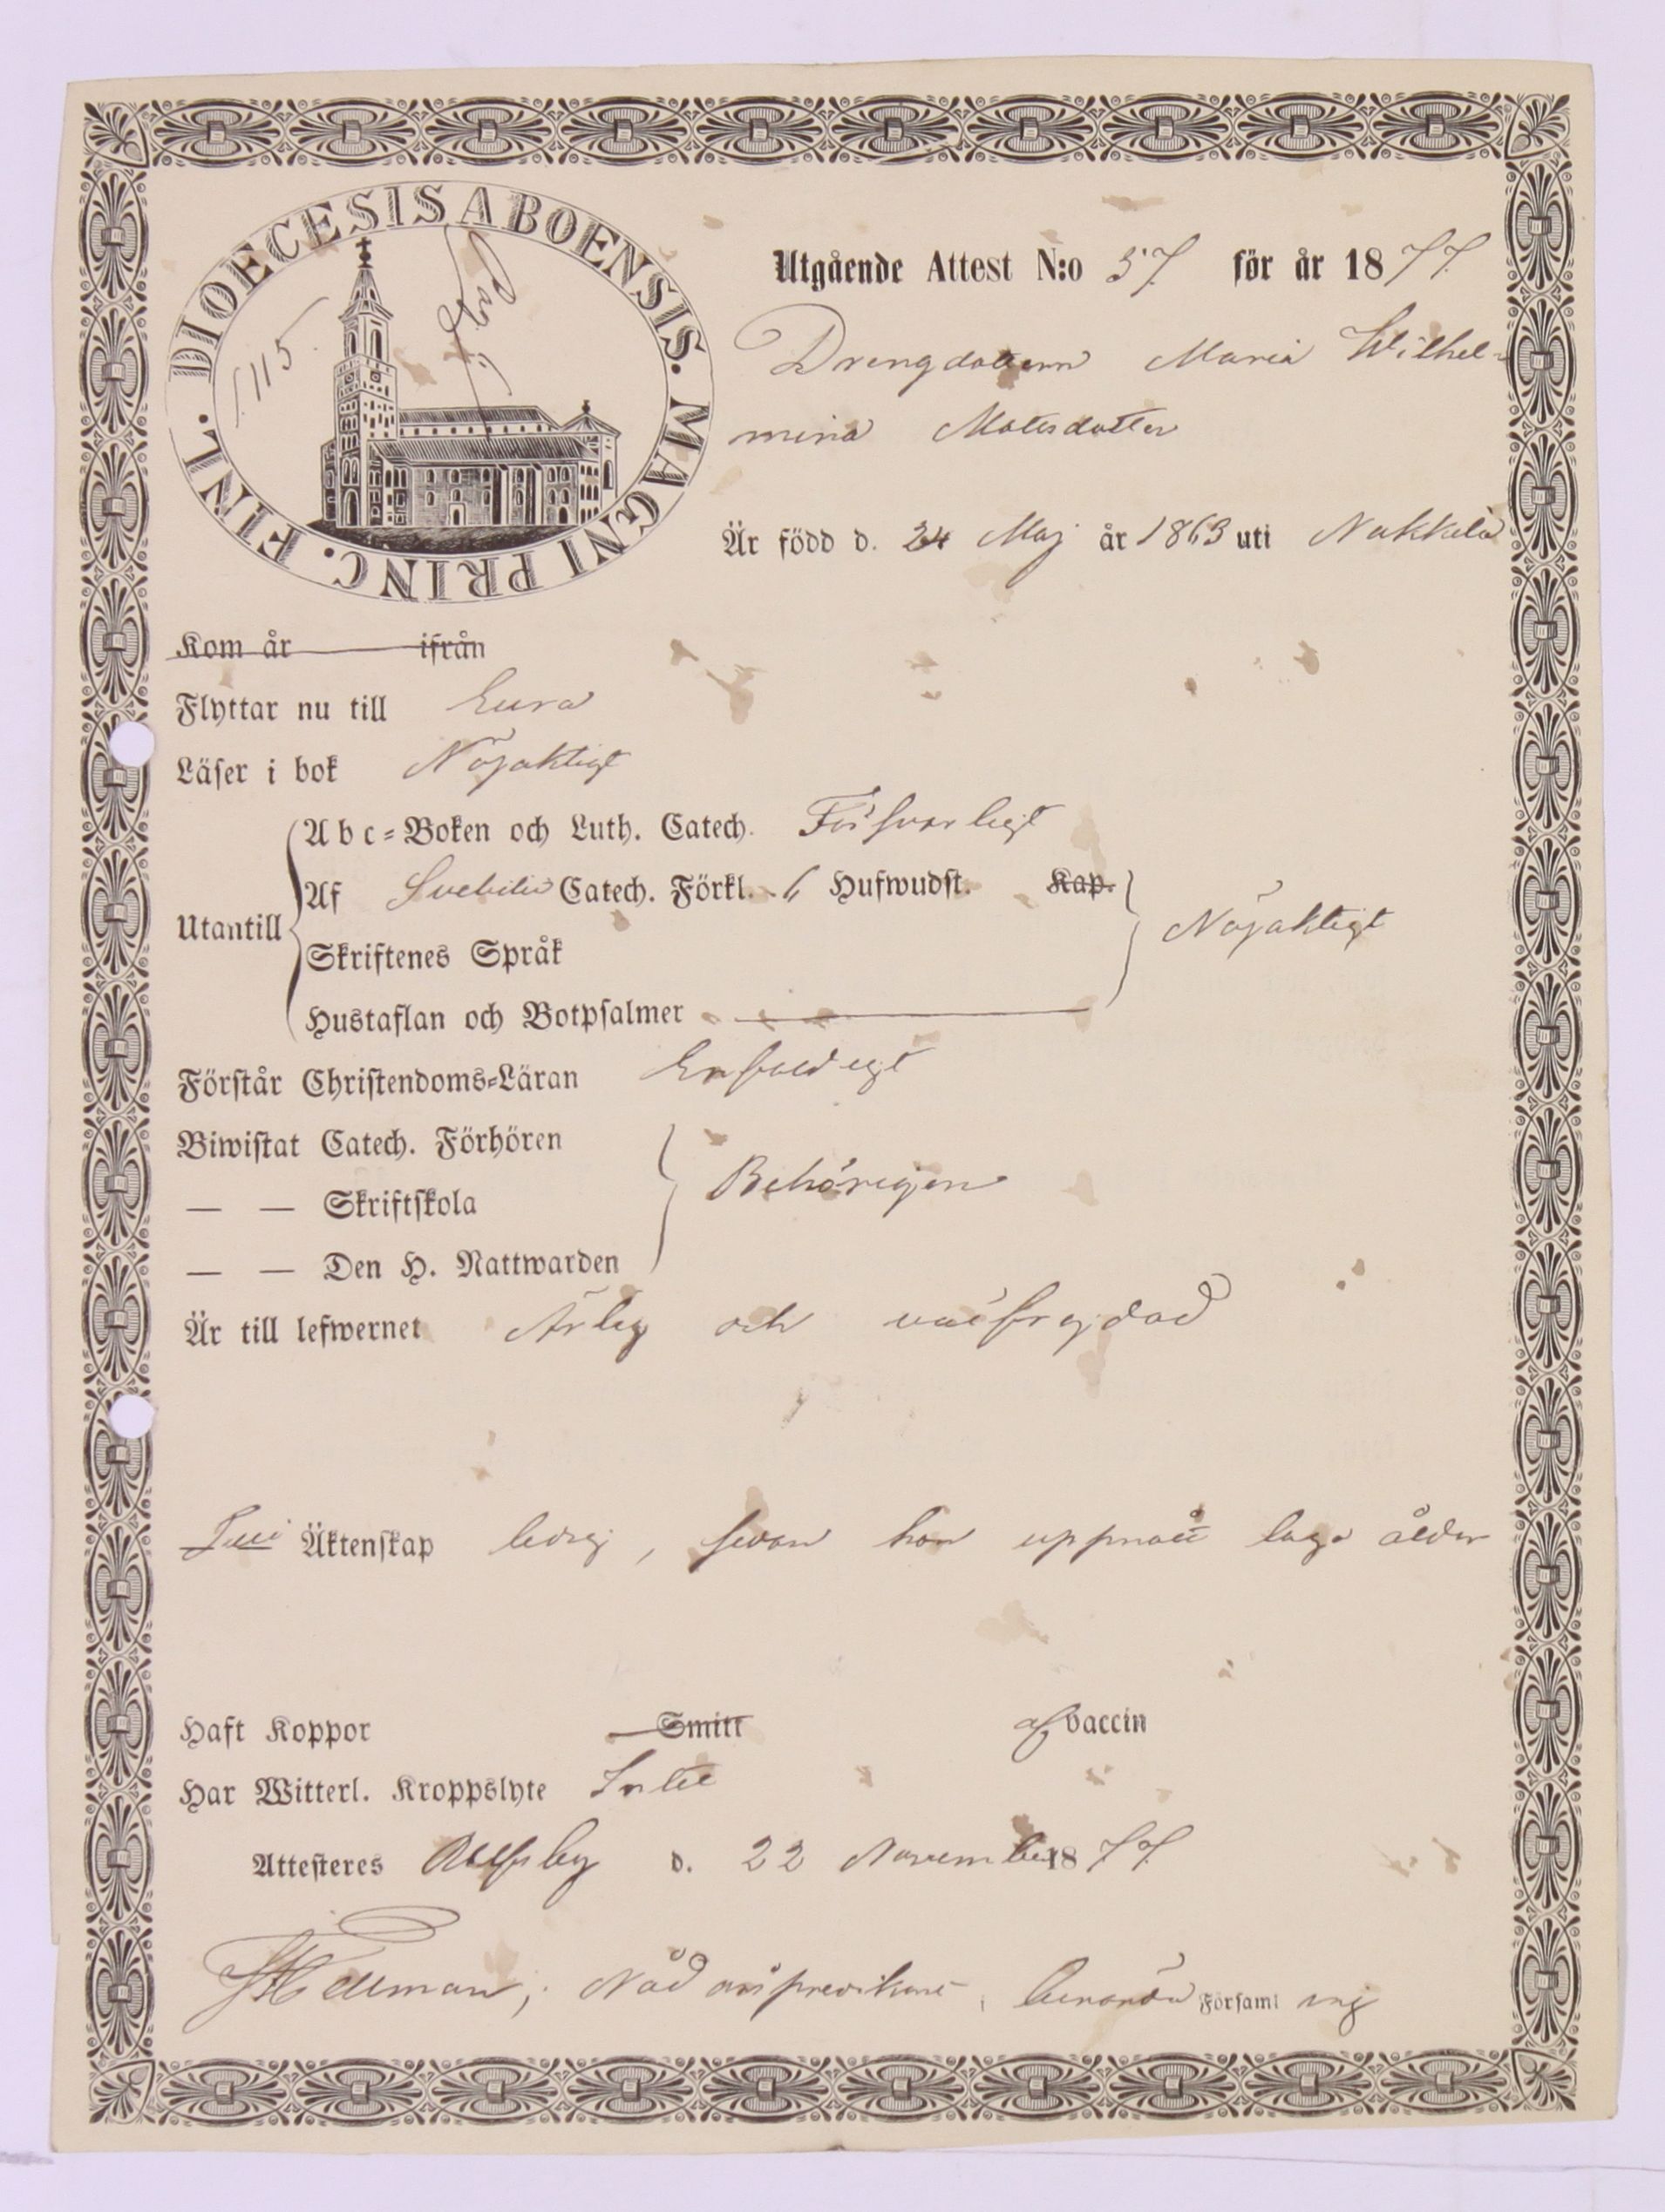 DIOECESIS ABOENSIS. MAGNI PRINC. FINL.
115.
Utgående Attest N:o 57 för år 1877.
Drengdottern Maria Wilhel-
mina Matsdotter
Är född d. 24 Maj år 1863 uti Nakkila
Kom år ifrån
Flyttar nu till Eura
Läser i bok Nöjaktigt
Utantill
Abc-Boken och Luth. Catech. Försvarligt
Af Svebilii Catech. Förkl. 6 Hufwudst. Kap.
Skriftenes Språk
Nöjaktigt
Hustaflan och Botpsalmer
Förstår Christendoms-Läran Enfaldigt
Biwistat Catech. Förhören
— — Skriftskola
Behörigen
— — Den H. Nattwarden
Är till lefwernet Ärlig och välfrejdad
Till Äktenskap ledig, sedan hon uppnått laga ålder
Haft Koppor Smitt af vaccin
Har Witterl. Kroppslyte Intet
Attesteres Ulfsby d. 22 November 1877.
Hellman, Nådårspredikant, Församl